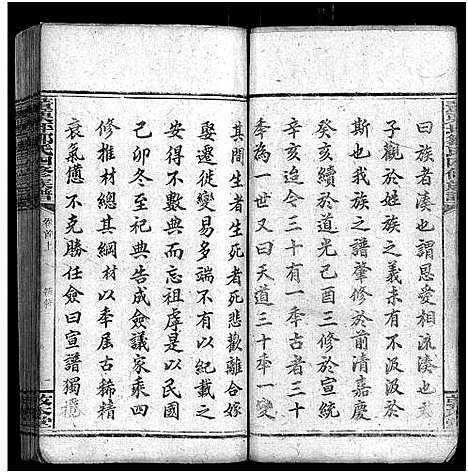 曰族者湊也謂恩愛相流湊也君
子觀於姓族之義未有不汲汲於
斯也我族之譜肇修於前清嘉慶
癸亥續於道光己酉三修於宣統
辛亥迄今三十有一年古者三十
年為一世又曰天道三十年一變
其間生者生死者死悲歡離合嫁
娶遷徙變易多端不有以紀載之
安得不數典而忘祖虖是以民國
己卯冬至祀典告成僉議家乘四
修推材總其綱材以年屆古稀精
衰氣憊不克勝任僉曰宣譜獨
卷首上
敦本堂